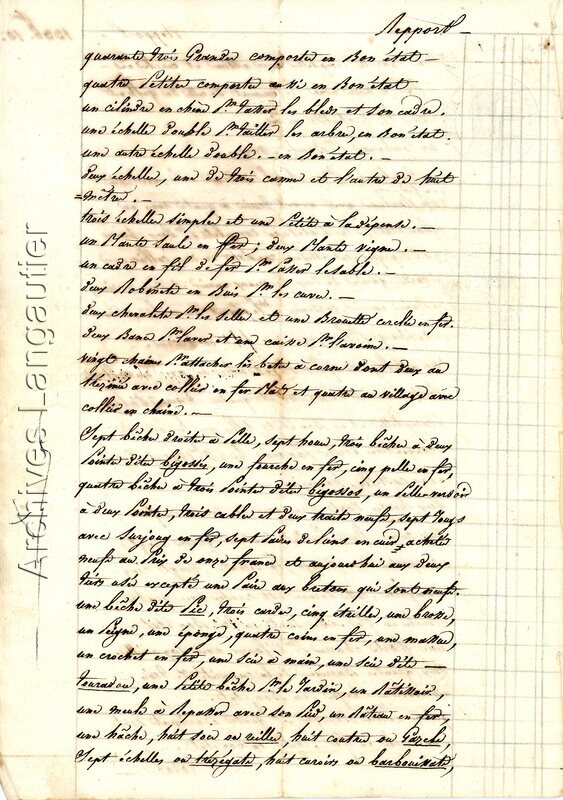 Report
quarante trois Grande comporte en Bon état —
quatre Petite comporte aussi en Bon état
un cilindre en chene Pr. Passer les bleds et son cadre.
une échelle double Pr. tailler les arbre, en Bon état.
une autre échelle double. — en Bon état. —
deux échelle, une de trois canne et l'autre de huit
= mêtre. —
trois échelle simple et une Petite à la dépense. —
un Plante Saule en fer ; deux Plante vigne. —
un cadre en fil de fer Pr. Passer le sable. —
deux Robinete en Buis Pr. les cuve. —
deux chevalete Pr. les selle et une Brouette cerclé en fer.
deux Banc Pr. laver et une caisse Pr. l'avoine. —
vingt chaine Pr. attacher les bete à corne dont deux au
avec collier en fer et quatre au village avec
collier en chaine. —
Sept bêche droite à Pelle, sept houe, trois bêche à deux
Pointe dite bigossés, une fourche en fer, cinq pelle en fer,
quatre bêche à trois Pointe dite bigossos, un Pelle-versoir
à deux Pointe, trois cable et deux trait neufs, sept Jougs
avec Surjoug en fer, sept Paire de liens en cuir achetés
neufs au Prix de onze franc et aujourdhui aux deux
tiers usé excepté une Paire aux bretous qui sont neufs
une bêche dite Pic, trois carde, cinq étrille, une brosse,
un Peigne, une éponge, quatre coins en fer, une massue,
un crochet en fer, une scie à main, une scie dite —
touradou, une Petite bêche Pr. le Jardin, un Ratissoir,
une meule à Repasser avec son Pied, un Râteau en fer,
une hâche, huit socs ou reille, huit coutre ou
Sept échelles ou trézégate, huit curoirs ou barbouissate,
Archives Langautier